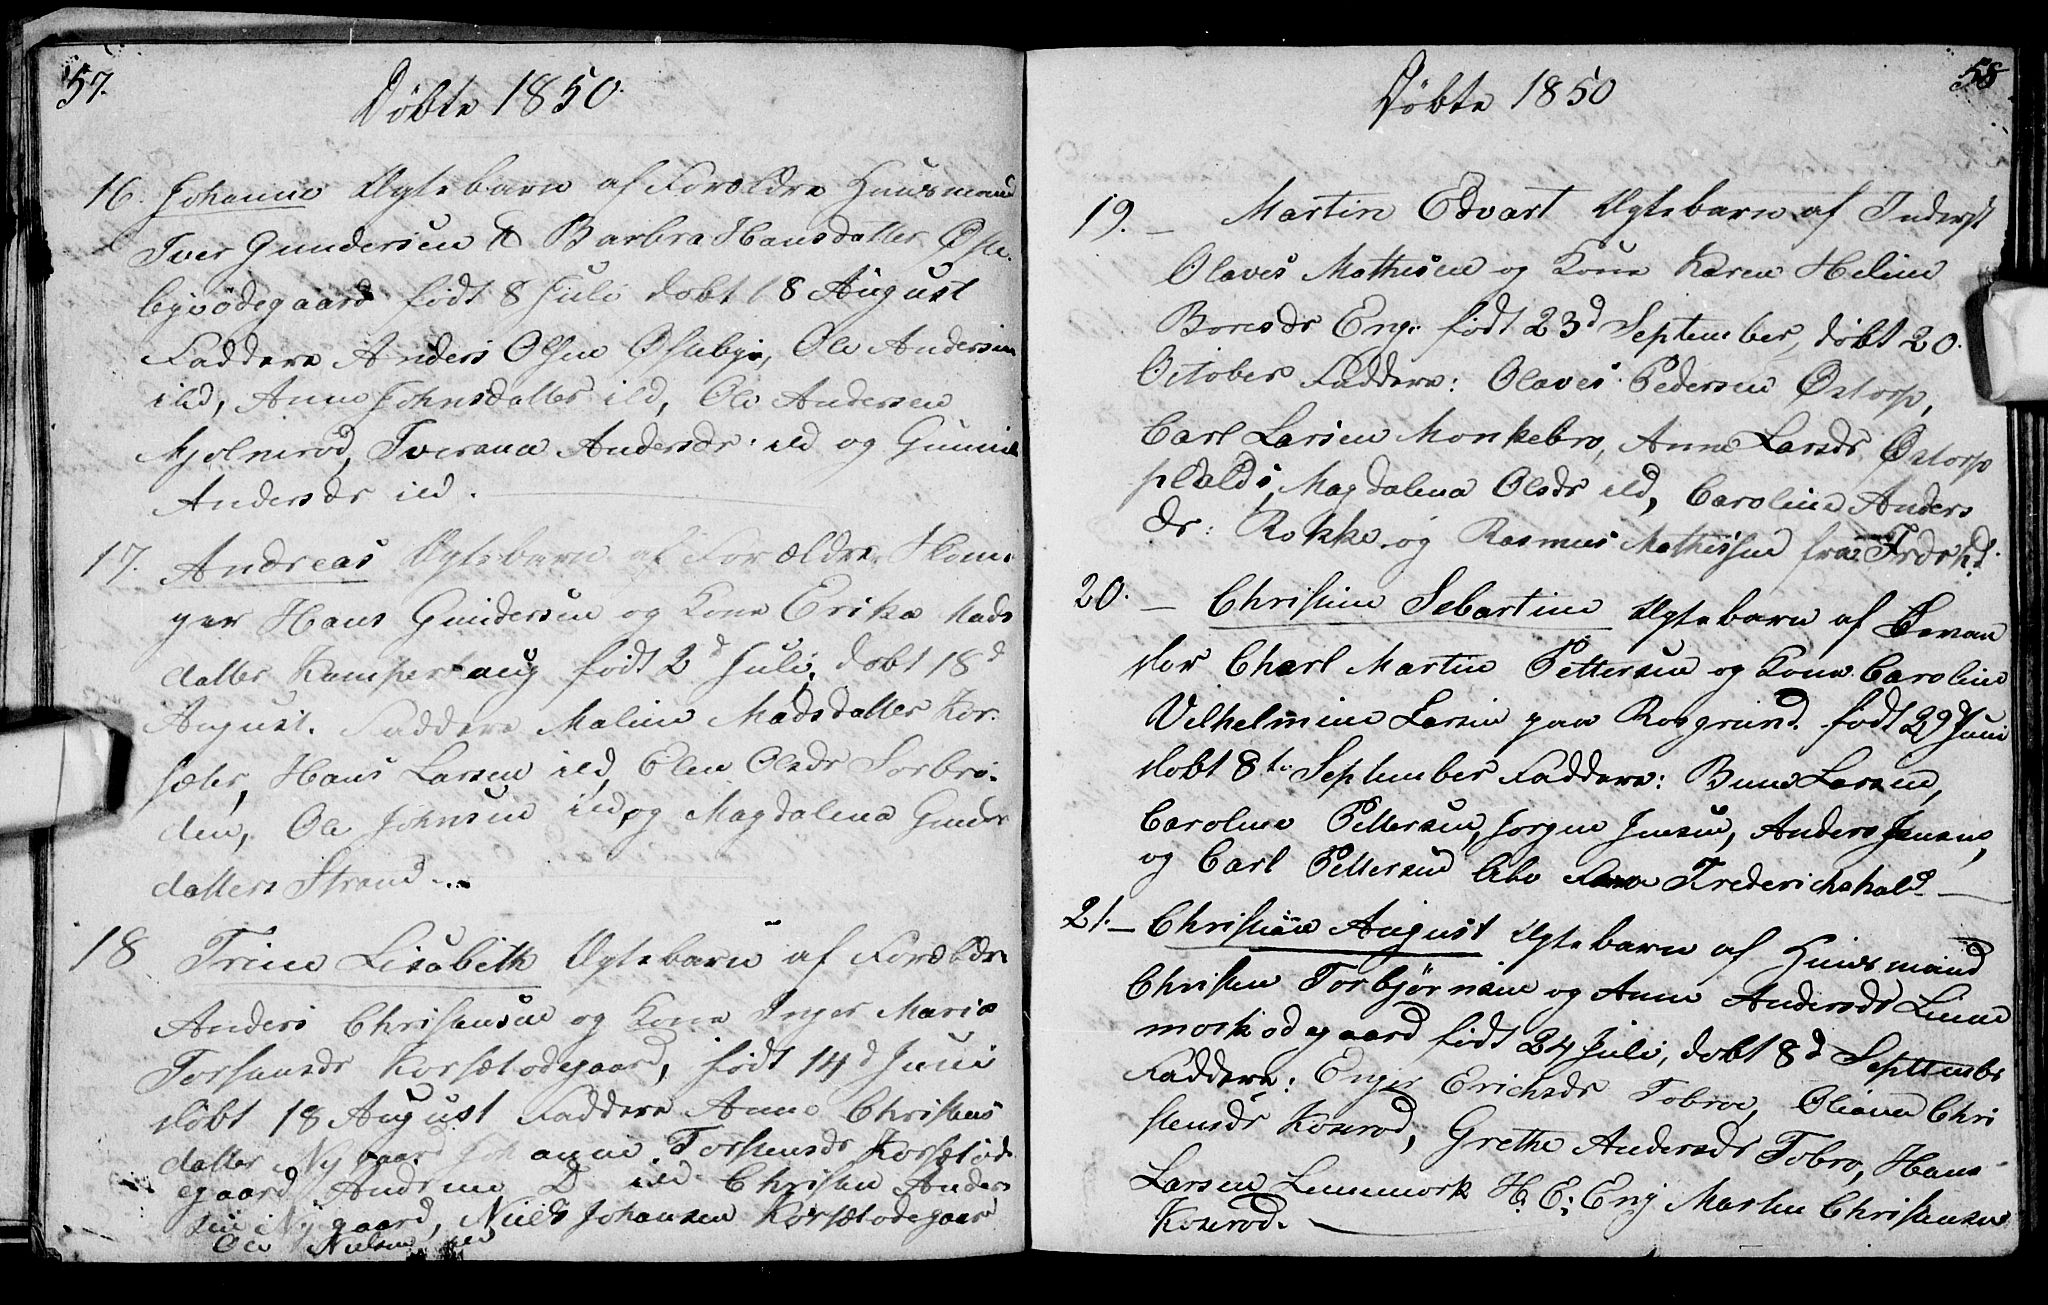 57.
Døbte 1850.
16. Johanne Ægtebarn af Forældre Huusmand
Iver Gundersen & Barbra Hansdatter Øste-
byeødegaard født 8 Juli døbt 18 August
Faddere Anders Olsen Østebye, Ole Andersen
ibd, Anne Johnsdatter ibd, Ole Andersen
Mjølnerød, Iverana Andersdr: ibd og Gunnil
Andersdr ibd.
17. Andreas Ægtebarn af Forældre Skoma-
ger Hans Gundersen og Kone Erika Mads
datter Kamperhaug født 2d Juli, døbt 18d
August. Faddere Maline Madsdatter Kor-
sæter, Hans Larsen ibd, Elen Olsdr Sorbrø-
den, Ole Johnsen ibd, og Magdalena Gunder
datter Strand.
18 Trine Lisabeth Ægtebarn af Forældre
Anders Christensen og Kone Inger Maria
Torstensdr Korsætødegaard, født 14d Juni
døbt 18 August Faddere Anne Christens
datter Nygaard Johanne Torstensdr Korsætød-
egaard Andrine D ibd Christen Ander
sen Nygaard, Niels Johansen Korsætødegaar
Ole Nielsen ibd
58
Døbte 1850
19. – Martin Edvart Ægtebarn af Inderst
Olaves Mathisen og Kone Karen Helene
Boresdr Eng. født 23d September, døbt 20.
October Faddere: Olaves Pedersen Østorp,
Carl Larsen Monkebro, Anne Larsdr Østorp
plads, Magdalena Olsdr ibd, Caroline Anders
dr: Rokke og Rasmus Mathissen fra Frdrhd.
20. – Christine Sebartine Ægtebarn af
Charl Martin Pettersen og Kone Caroline
Vilhelmine Larsen paa Rosgrund. født 29d Juni
døbt 8de September Faddere: Larsen,
Caroline Pettersen, Jørgen Jensen, Anders Jensens,
og Carl Pettersen Frederichshald
21. – Christian August Ægtebarn af Huusmand
Christen Torbjørnsen og Anne Andersdr Linne
morkødegaard født 24 Juli, døbt 8d Septembr
Faddere: Enger Erichsdr Tobroe, Oliana Chri
stensdr Koserød, Grethe Andersdr Tobro, Hans
Larsen Linnemork H. E: Eng Martin Christensen
Koserød.